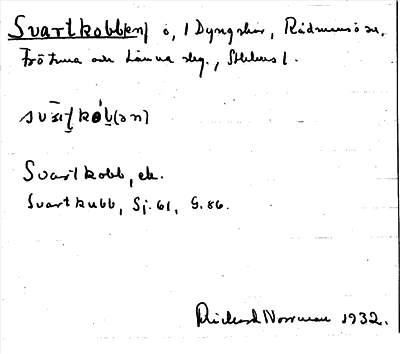 Svartkobb(en) ö, i Dyngskär, Rådmansö sn,
Frötuna och Länna slg., Sthlms l.
svat̠kob̠(ən)
Svartkobb, ek.
Svartkubb, Sj. 61, G. 86.
Rickard Norrman 1932.